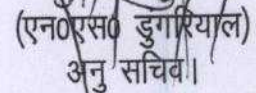 (एन0एस0 डुगरियाल)
अनु सचिव।